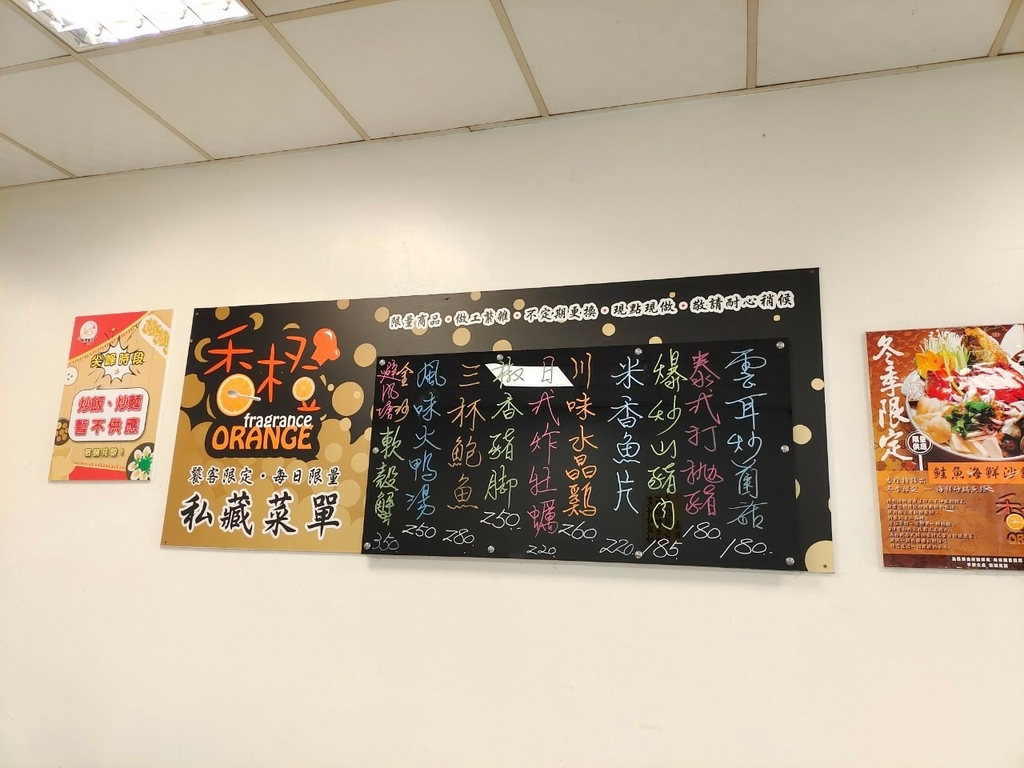 尖峰時段
炒飯、炒麵
暫不供應
香橙
fragrance
ORANGE
饕客限定・每日限量
私藏菜單
限量商品・做工繁雜・不定期更換・現點現做・敬請耐心稍候
雲耳炒菌菇 180.
泰式打拋豬 180
爆炒山豬肉 185
米香魚片 220
川味水晶鷄 260
日式炸牡蠣 220
椒香豬脚 250
三杯鮑魚 280
風味火鴨湯 250
避風塘
金沙
軟殼蟹 350
冬季限定
限量供應
鮭魚海鮮沙